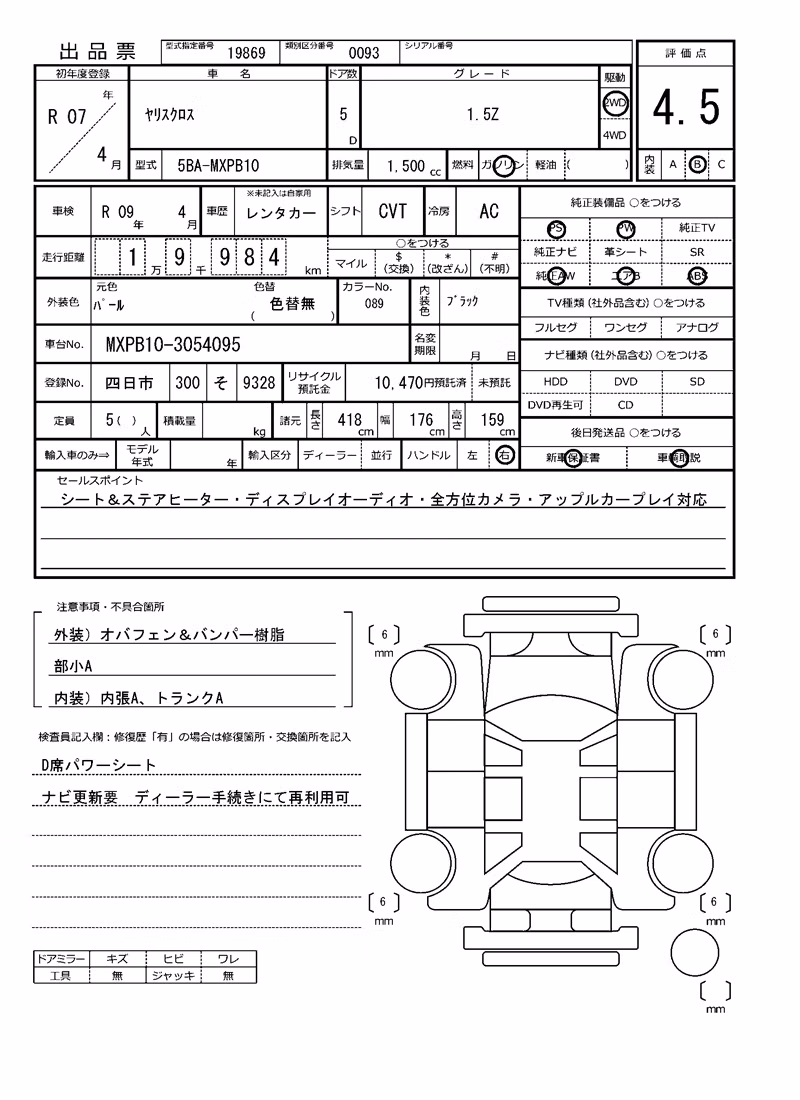 出品票 型式指定番号 19869 類別区分番号 0093 シリアル番号
評価点
4.5
内装 A B C
初年度登録 車名 ドア数 グレード 駆動
R 07 年 4 月 ヤリスクロス 5 D 1.5Z 2WD 4WD
型式 5BA-MXPB10 排気量 1,500 cc 燃料 ガソリン 軽油 ( )
車検 R 09 年 4 月 車歴 ※未記入は自家用 レンタカー シフト CVT 冷房 AC
走行距離 1 万 9 千 9 8 4 km ○をつける
マイル $ (交換) * (改ざん) # (不明)
外装色 元色 パール 色替 ( 色替無 ) カラーNo. 089 内装色 ブラック
車台No. MXPB10-3054095 名変期限 月 日
登録No. 四日市 300 そ 9328 リサイクル預託金 10,470円預託済 未預託
定員 5 ( ) 人 積載量 kg 諸元 長さ 418 cm 幅 176 cm 高さ 159 cm
輸入車のみ⇒ モデル年式 年 輸入区分 ディーラー 並行 ハンドル 左 右
純正装備品 ○をつける
PS PW 純正TV
純正ナビ 革シート SR
純正AW エアB ABS
TV種類(社外品含む) ○をつける
フルセグ ワンセグ アナログ
ナビ種類(社外品含む) ○をつける
HDD DVD SD
DVD再生可 CD
後日発送品 ○をつける
新車保証書 車輌取説
セールスポイント
シート&ステアヒーター・ディスプレイオーディオ・全方位カメラ・アップルカープレイ対応
注意事項・不具合箇所
外装) オバフェン&バンパー樹脂
部小A
内装) 内張A、トランクA
検査員記入欄:修復歴「有」の場合は修復箇所・交換箇所を記入
D席パワーシート
ナビ更新要 ディーラー手続きにて再利用可
ドアミラー キズ ヒビ ワレ
工具 無 ジャッキ 無
( 6 ) mm
( 6 ) mm
( 6 ) mm
( 6 ) mm
( ) mm